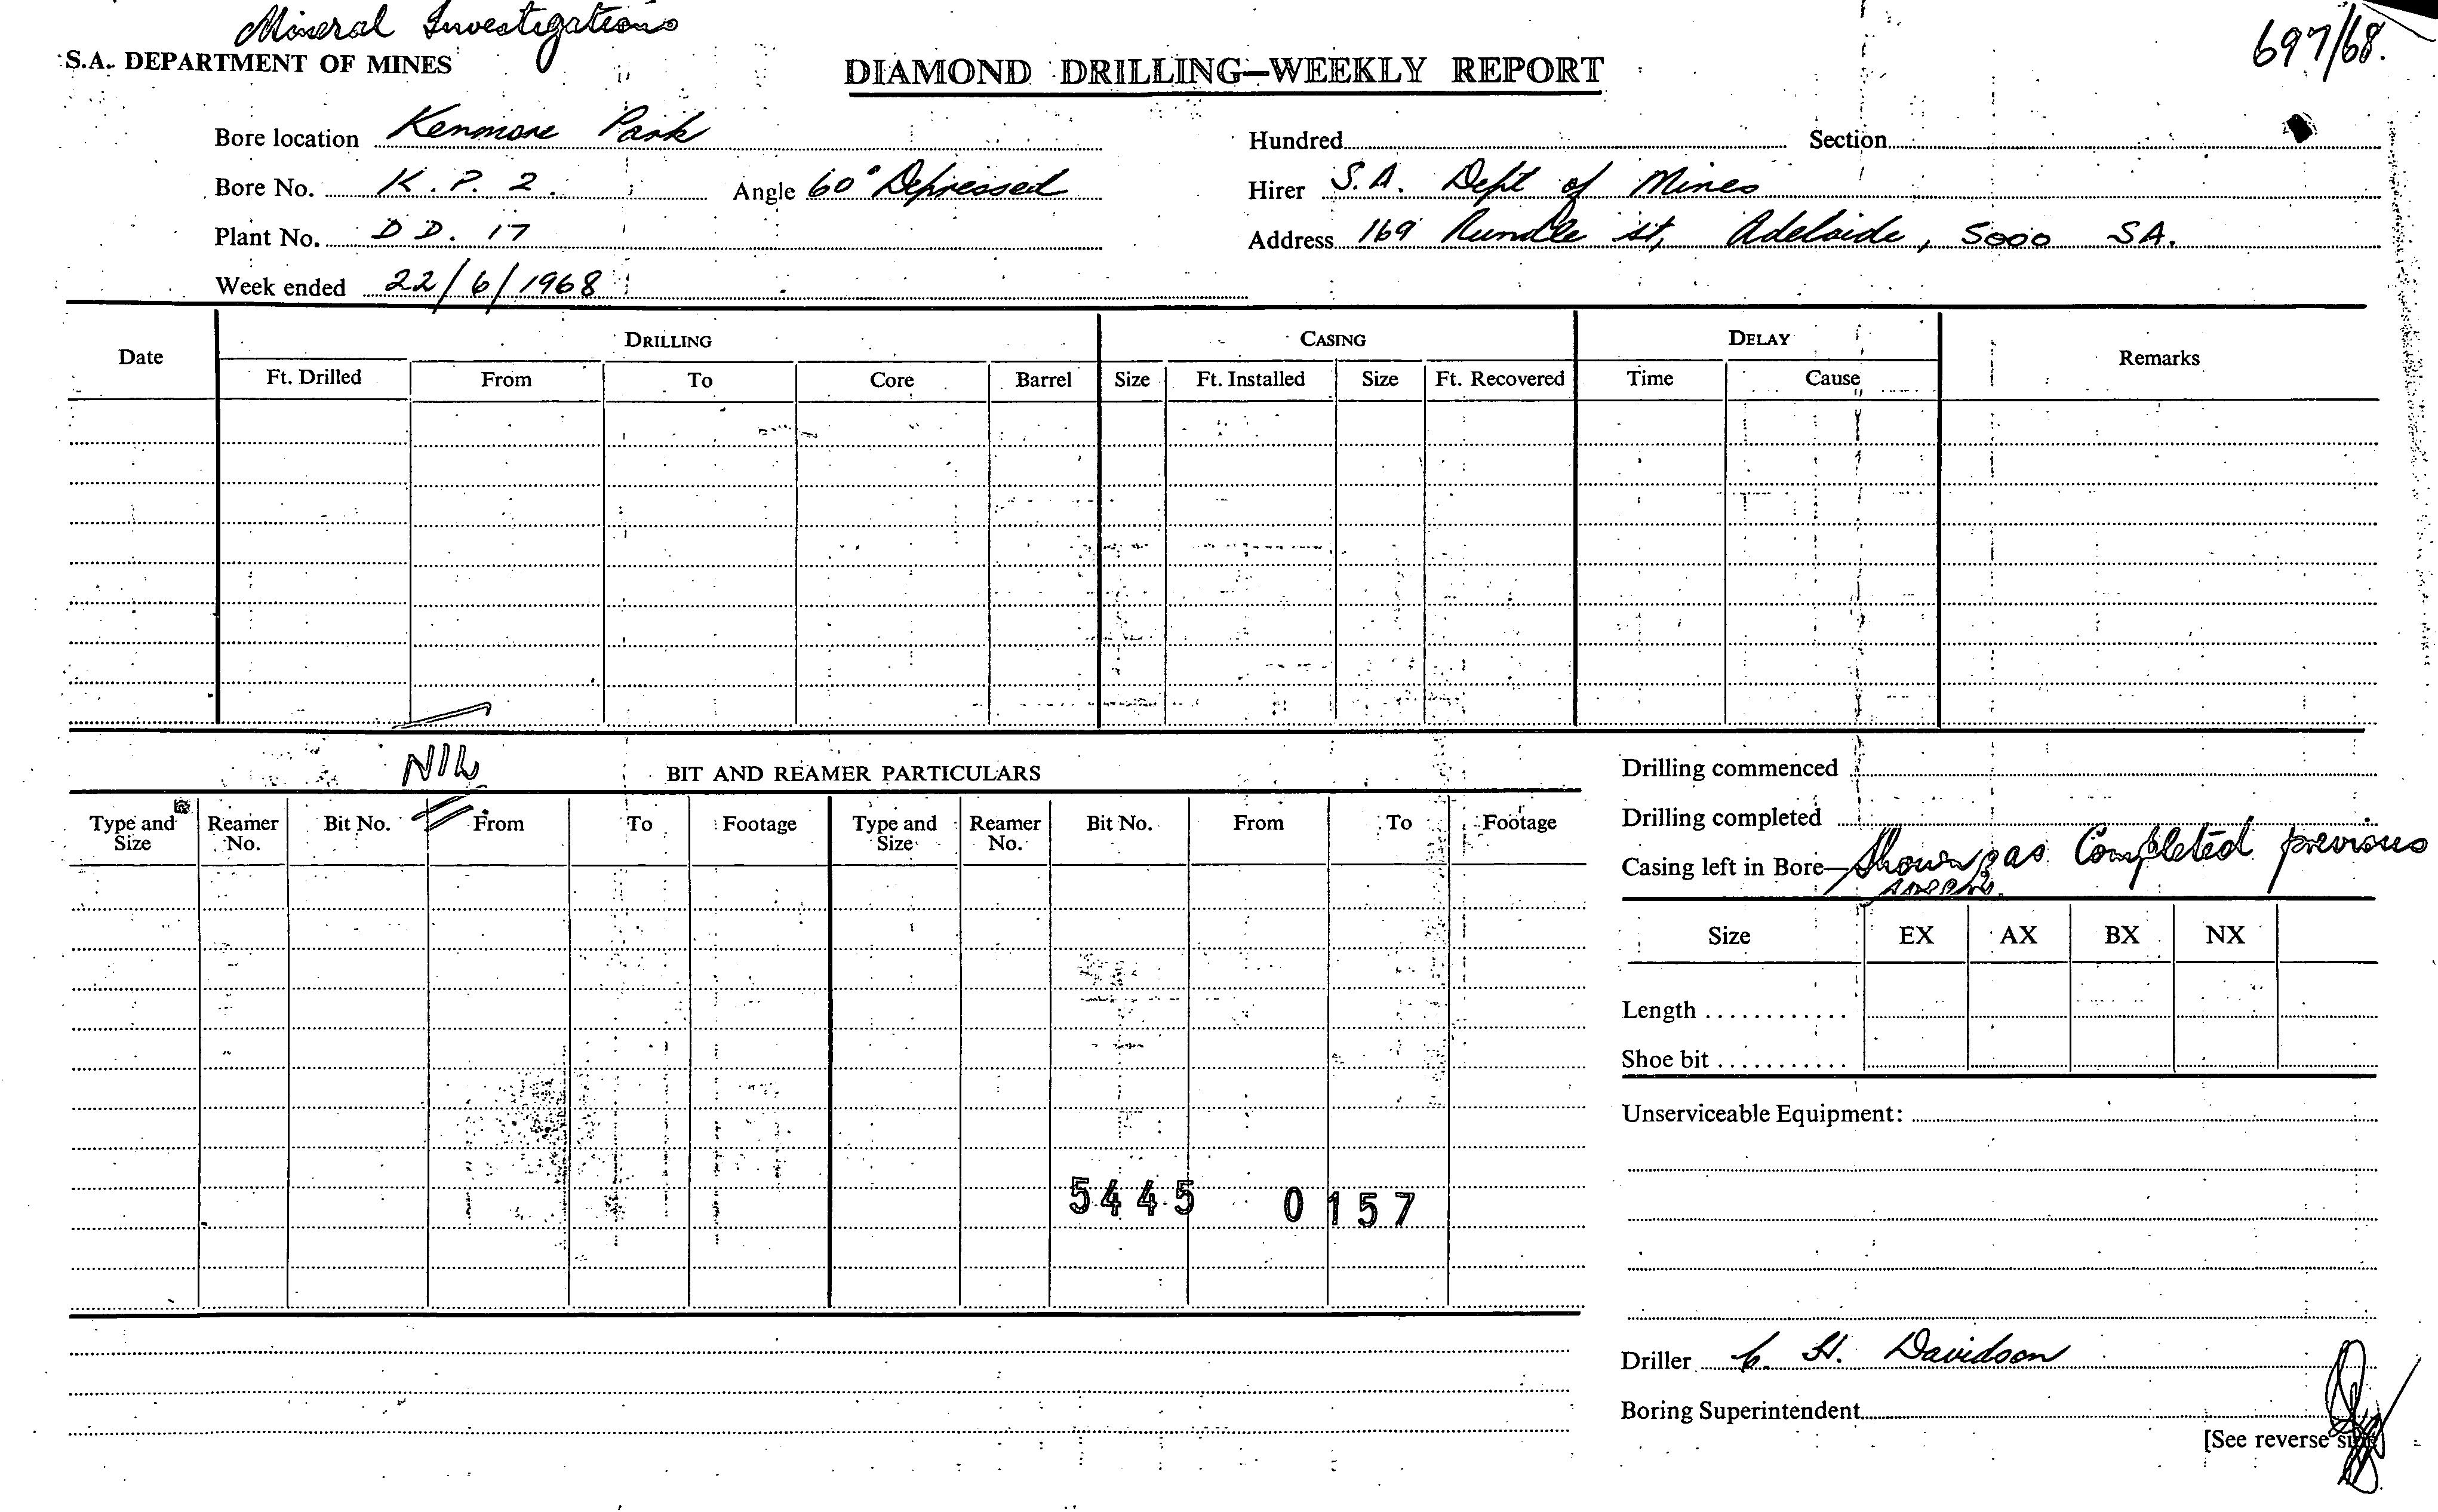 Mineral Investigations
697/68.
S.A. DEPARTMENT OF MINES
DIAMOND DRILLING—WEEKLY REPORT
Bore location Kenmore Park
Hundred Section
Bore No. K. P. 2. Angle 60° Depressed
Hirer S.A. Dept of Mines
Plant No. D D. 17
Address 169 Rundle St, Adelaide, 5000 SA.
Week ended 22/6/1968
Date DRILLING CASING DELAY Remarks
Ft. Drilled From To Core Barrel Size Ft. Installed Size Ft. Recovered Time Cause
NIL BIT AND REAMER PARTICULARS
Type and Size Reamer No. Bit No. From To Footage Type and Size Reamer No. Bit No. From To Footage
5445 0157
Drilling commenced
Drilling completed
Casing left in Bore— Shown as Completed previous
Size EX AX BX NX
Length
Shoe bit
Unserviceable Equipment:
Driller C. H. Davidson
Boring Superintendent
[See reverse side